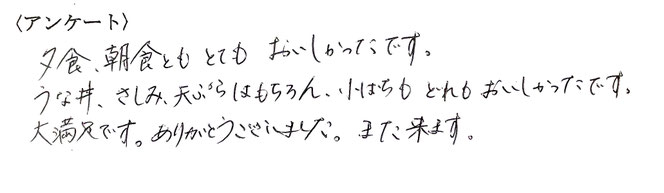 〈アンケート〉
夕食、朝食とも とても おいしかったです。
うな丼、さしみ、天ぷらはもちろん、小ばちも どれも おいしかったです。
大満足です。ありがとうございました。また来ます。